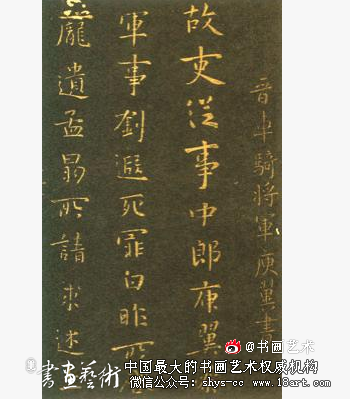 晋車騎將軍庾翼書
故吏從事中郎庾翼
軍事劉遐死罪白昨
龐遺孟昌所請求述
@书画艺术
書畫藝術
中国最大的书画艺术权威机构
微信公众号：shys-cc www.18art.com